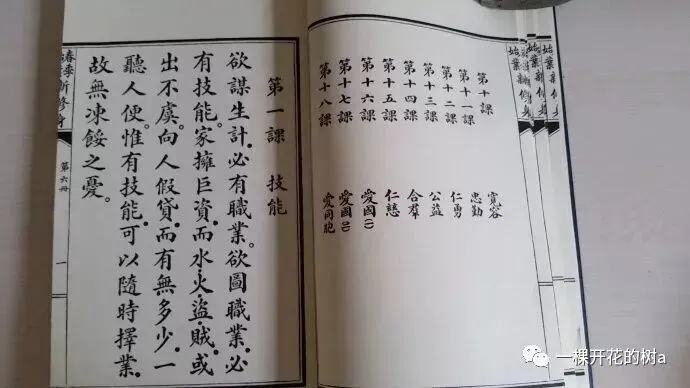 第十課 寬容
第十一課 忠勤
第十二課 仁勇
第十三課 公益
第十四課 合群
第十五課 仁慈
第十六課 愛國(一)
第十七課 愛國(二)
第十八課 愛同胞
第一課 技能
欲謀生計。必有職業。欲圖職業。必
有技能。家擁巨資。而水火盜賊。或
出不虞。向人假貸。而有無多少。一
聽人便。惟有技能。可以隨時擇業。
故無凍餒之憂。
春季新修身 第六冊 一
一棵开花的树a